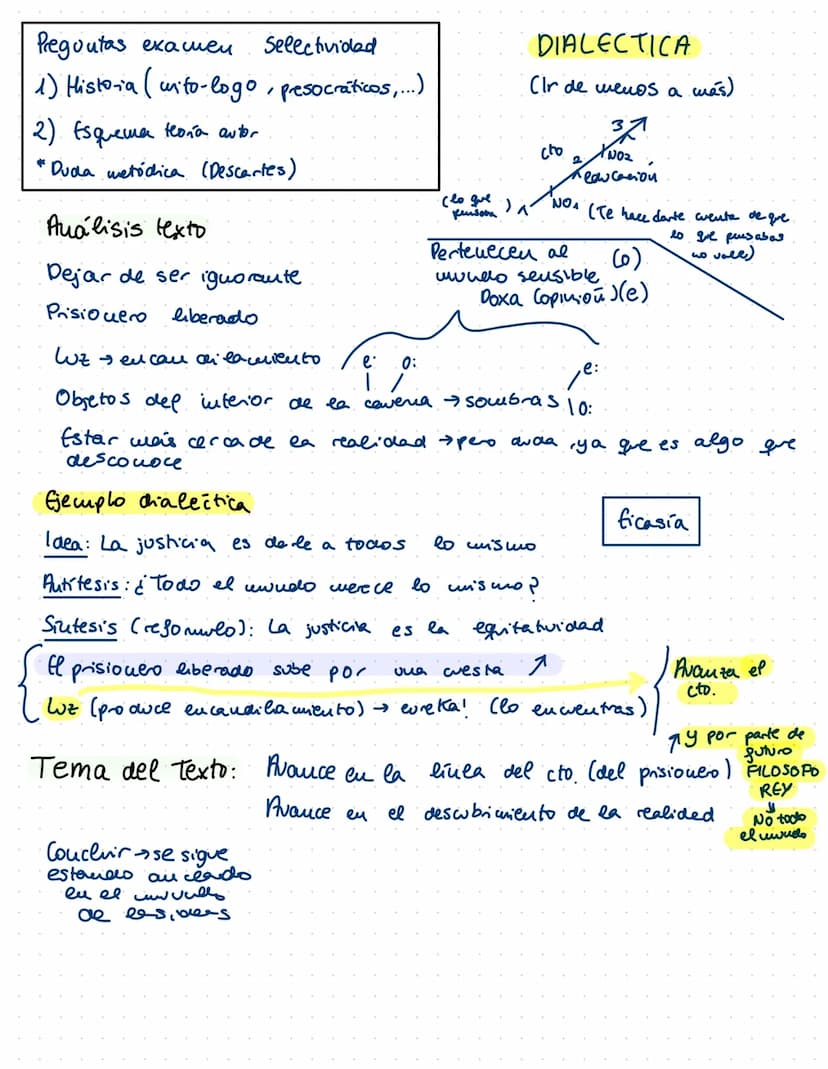 Preguntas examen Selectividad
1) Historia (mito-logo, presocráticos,...)
2) Esquema teoría autor
* Duda metódica (Descartes)
DIALECTICA
(Ir de menos a más)
3
cto 2 NO2
educación
(lo que pensaba) 1 NO1 (Te hace darte cuenta de que
lo que pensabas
no vale)
Análisis texto
Pertenecen al
mundo sensible (o)
Doxa (opinión) (e)
Dejar de ser ignorante
Prisionero liberado
Luz → encandilamiento
e: o: e:
Objetos del interior de la caverna → sombras o:
Estar más cerca de la realidad → pero duda, ya que es algo que
desconoce
Ejemplo dialéctica
Eicasía
Idea: La justicia es darle a todos lo mismo
Antítesis: ¿Todo el mundo merece lo mismo?
Síntesis (reformulo): La justicia es la equitatividad
El prisionero liberado sube por una cuesta ↗
Luz (produce encandilamiento) → eureka! (lo encuentras)
Avanza el
cto.
↑ y por parte de
futuro
FILOSOFO
REY
↓
No todo
el mundo
Tema del Texto: Avance en la línea del cto. (del prisionero)
Avance en el descubrimiento de la realidad
Concluir → se sigue
estando anclado
en el mundo
de las ideas